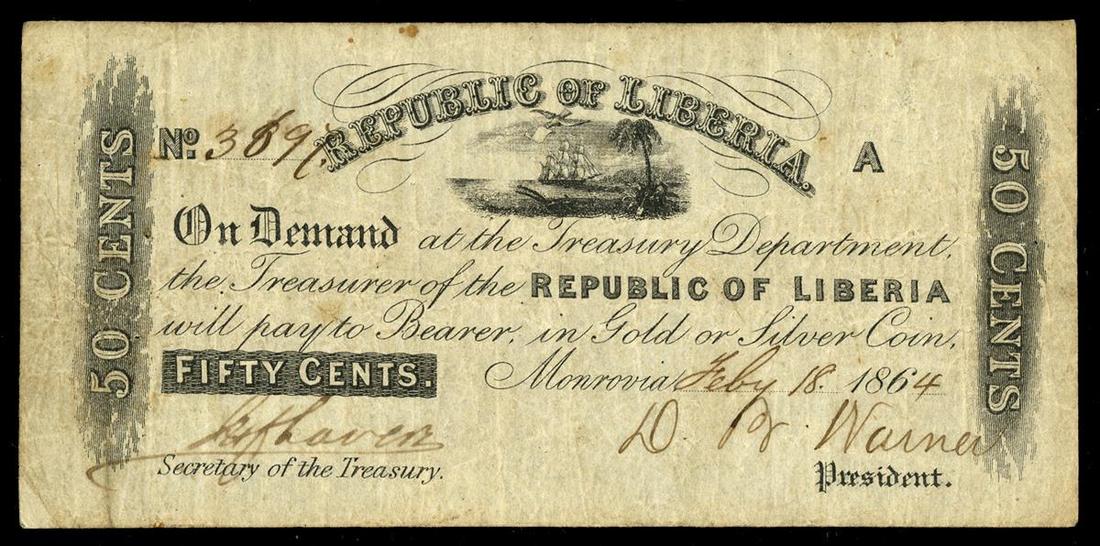 50 CENTS
REPUBLIC OF LIBERIA.
No. A
On Demand at the Treasury Department,
the Treasurer of the REPUBLIC OF LIBERIA
will pay to Bearer, in Gold or Silver Coin,
FIFTY CENTS. Monrovia Feby 18. 1864
D. B. Warner
Secretary of the Treasury. President.
50 CENTS